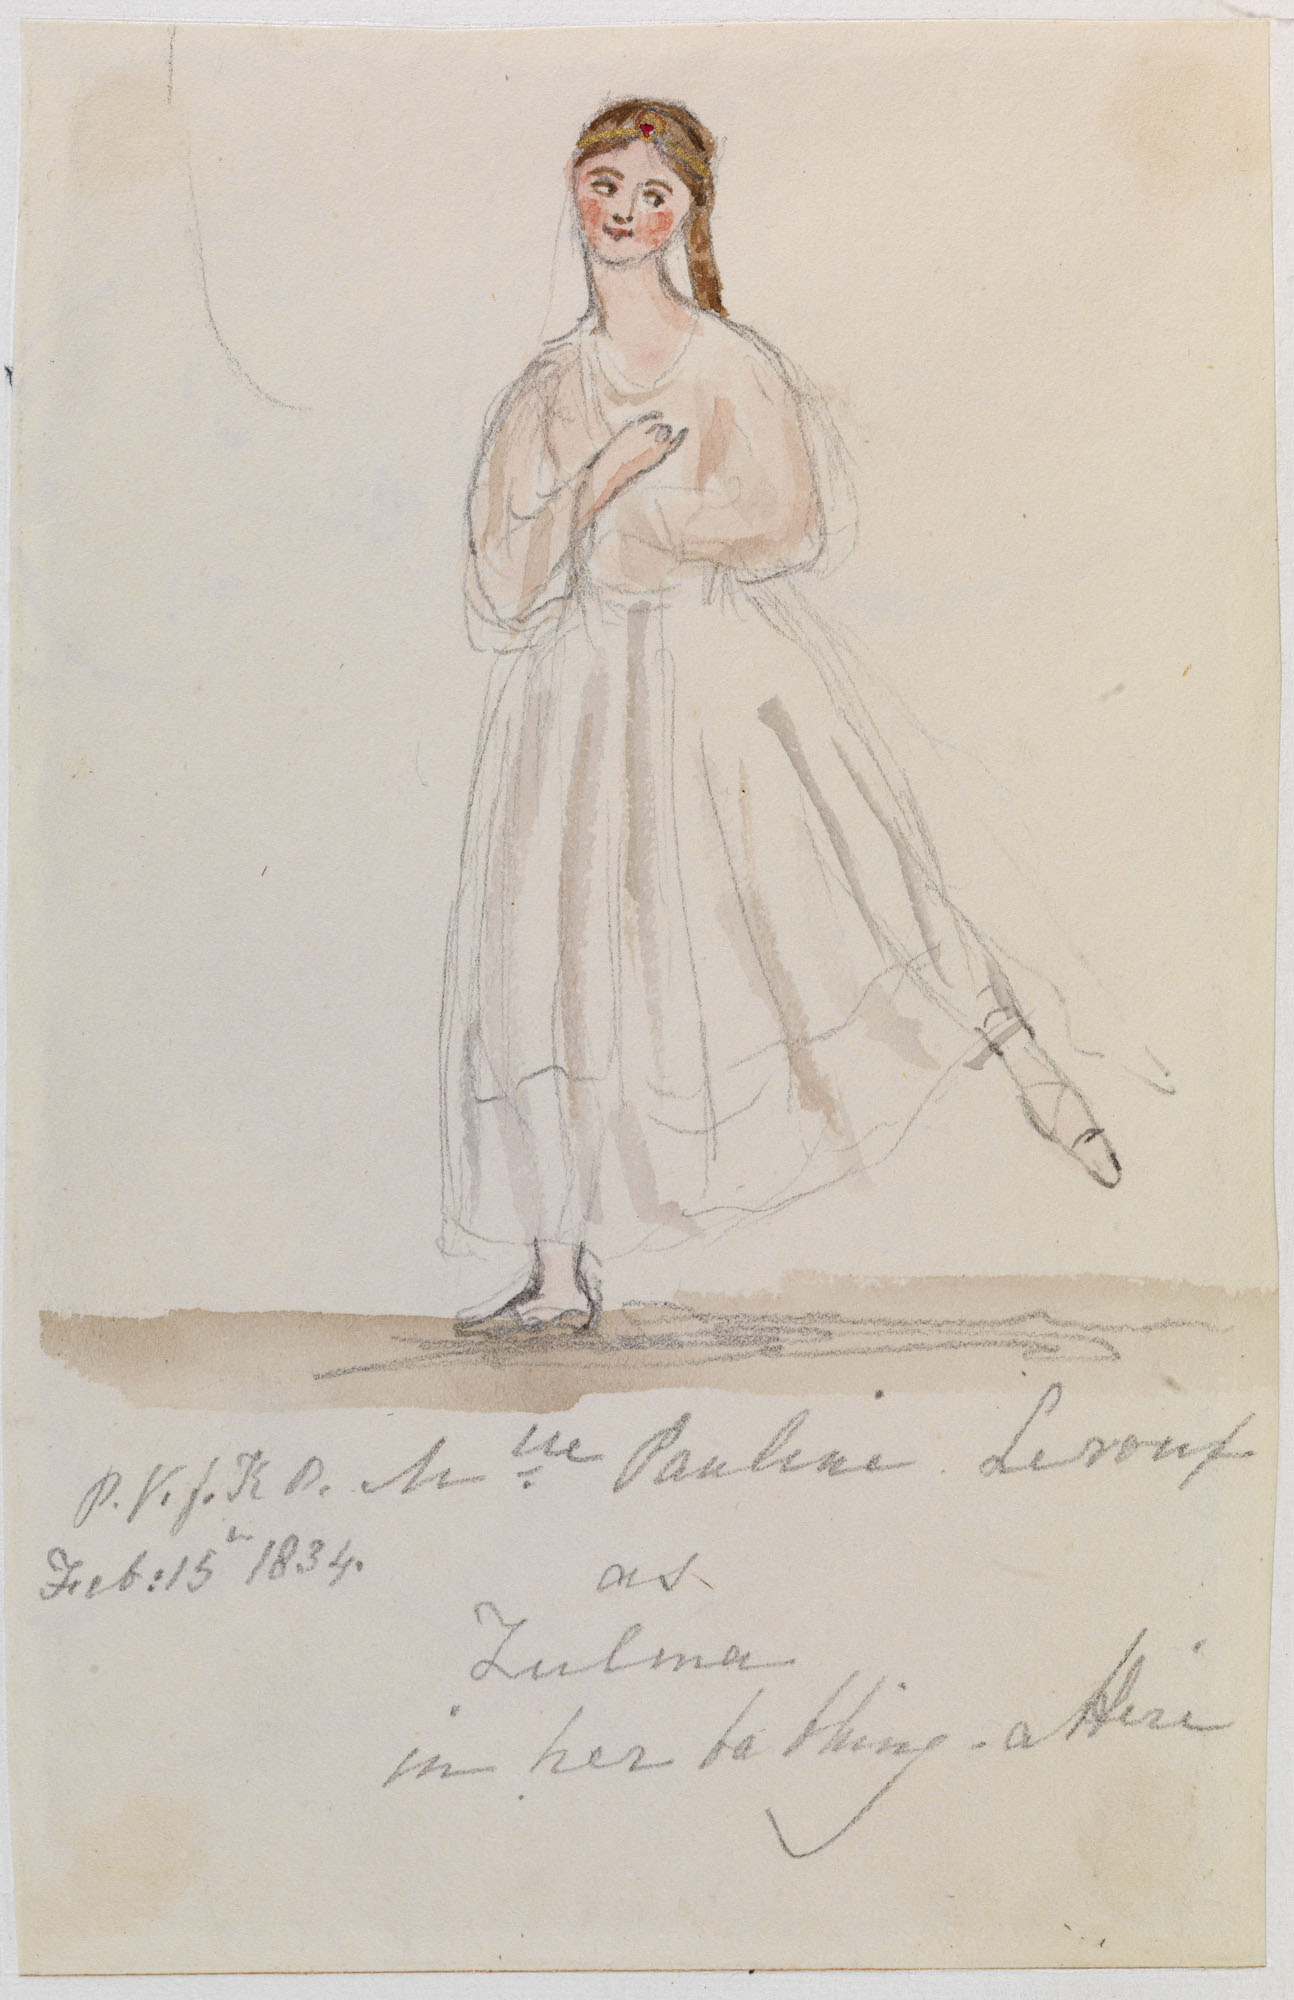 P.V.f.K.P. Mlle Pauline Leroux
Feb: 15th 1834.
as
Zulma
in her bathing-attire